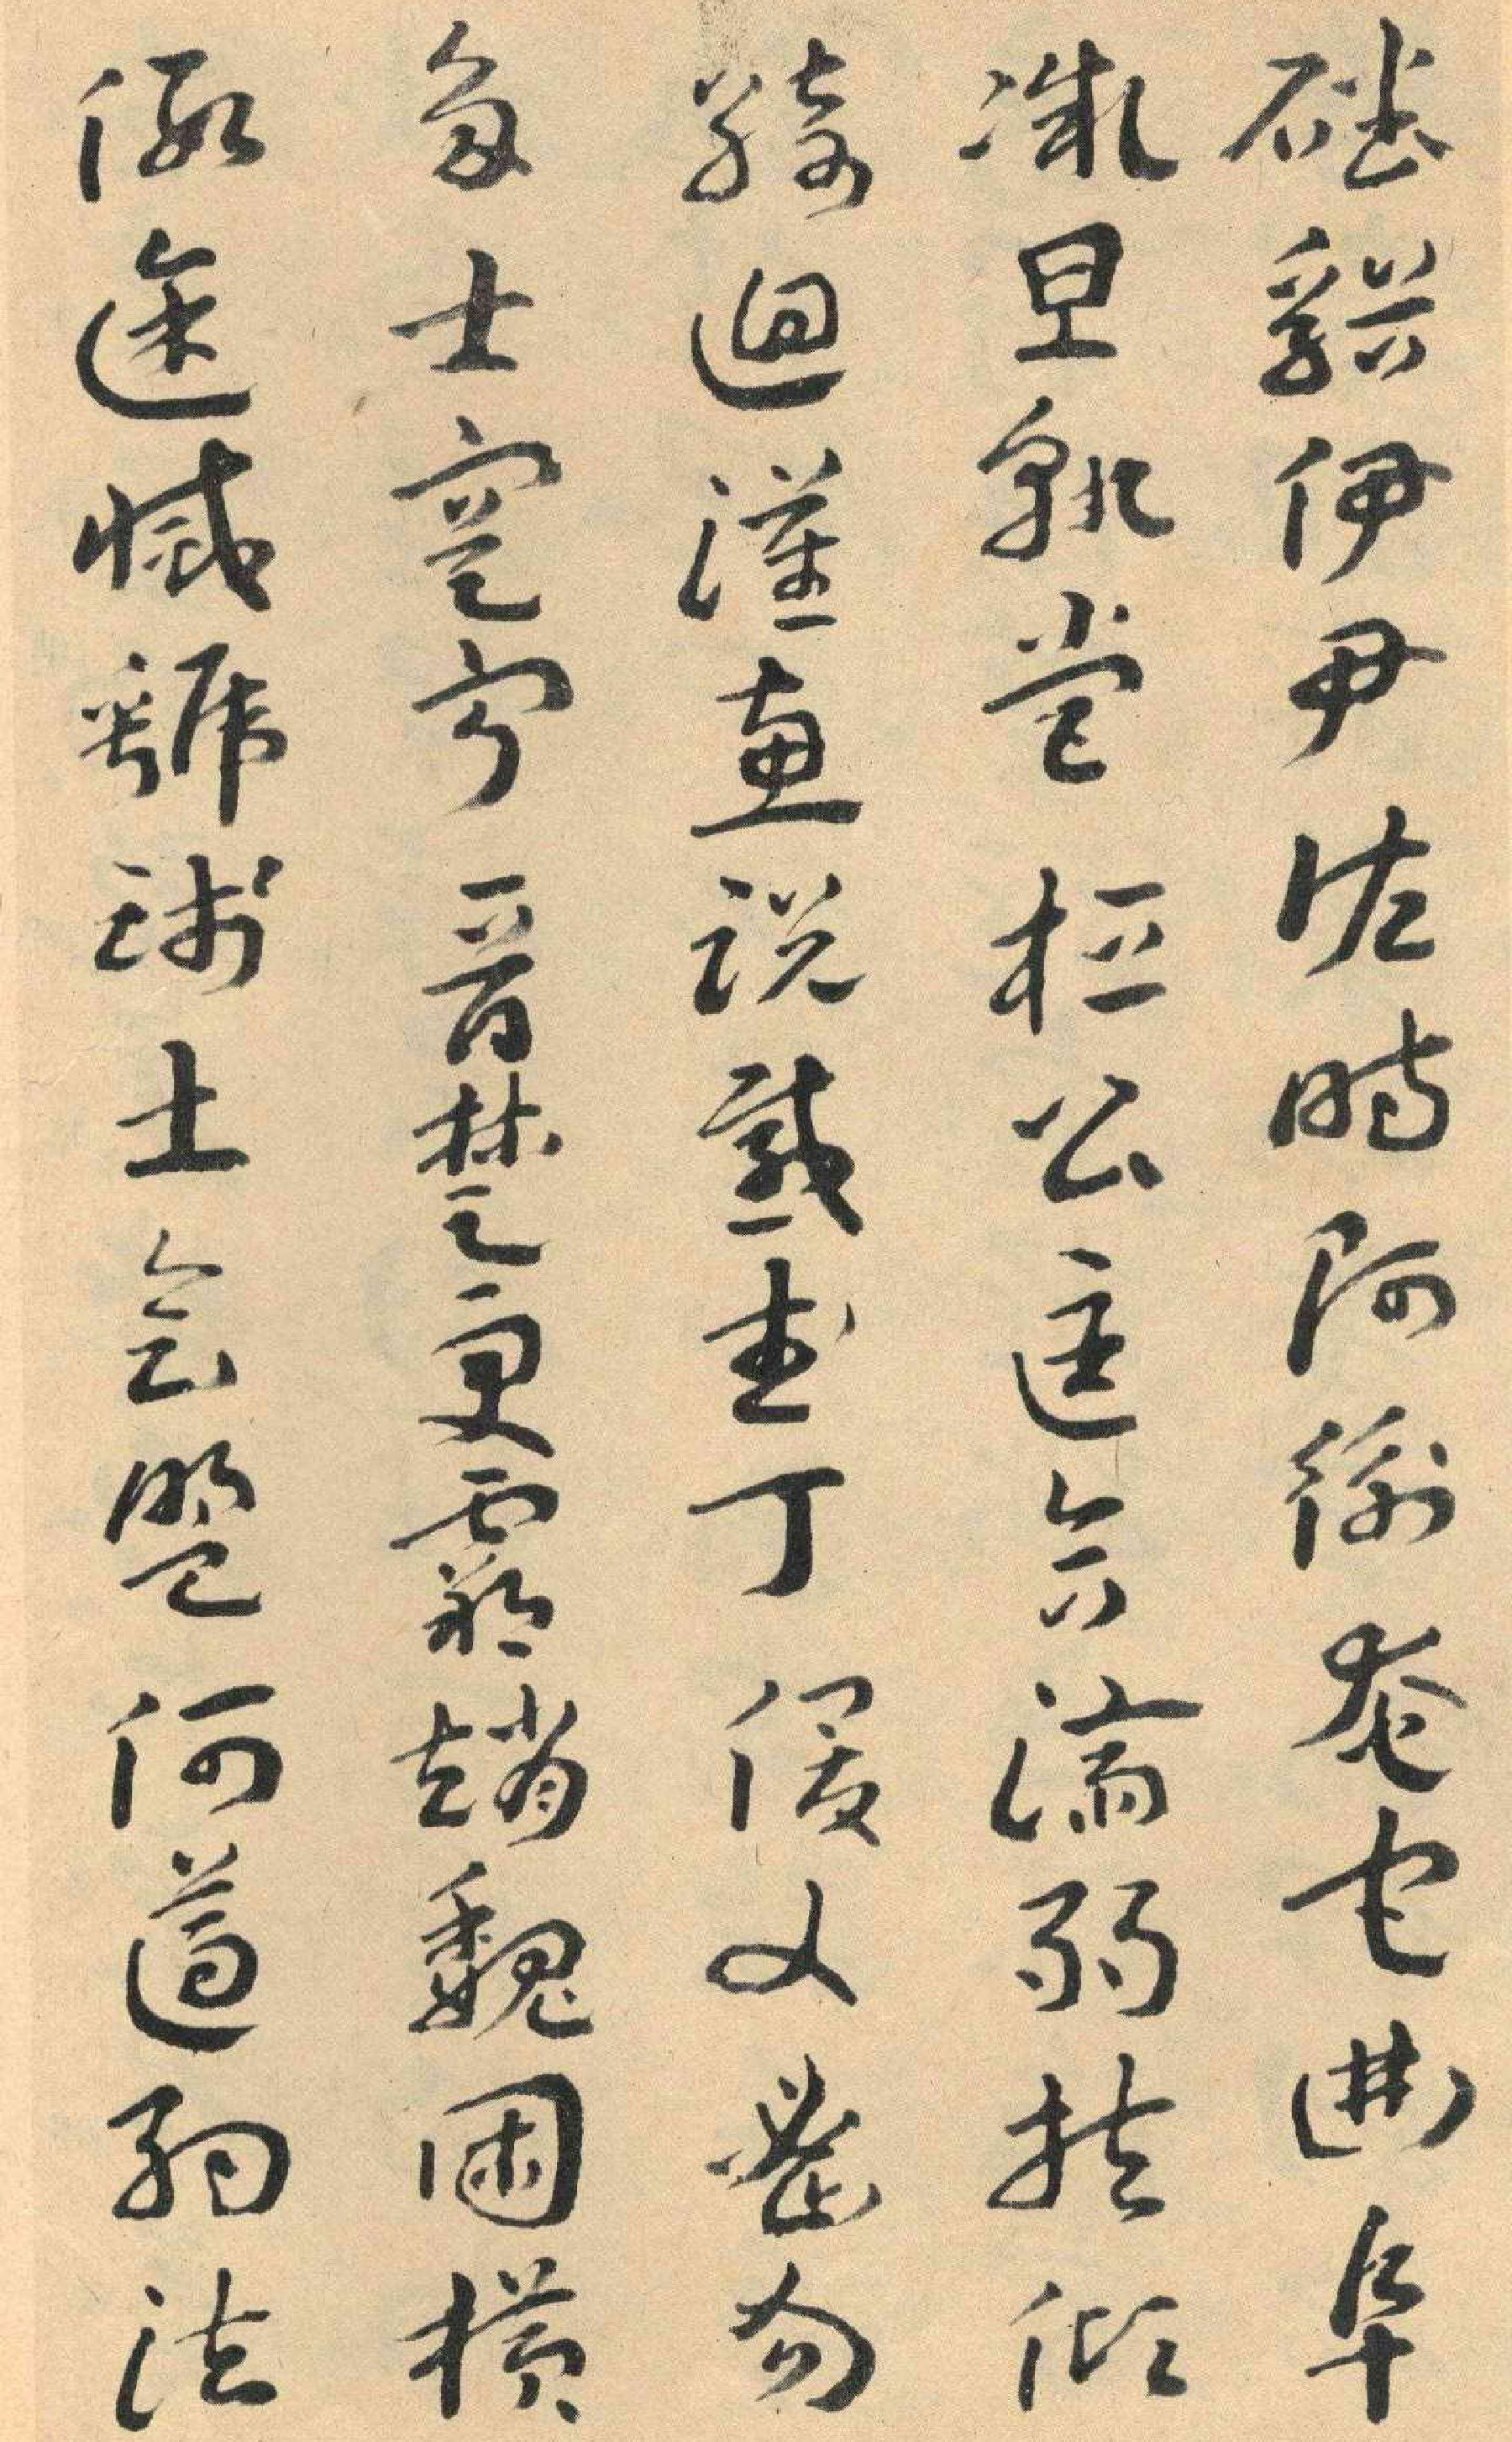 磻谿伊尹佐時阿衡奄宅曲阜
微旦孰營桓公匡合濟弱扶傾
綺迴漢惠說感武丁俊乂密勿
多士寔寧晉楚更霸趙魏困橫
假途滅虢踐土會盟何遵約法